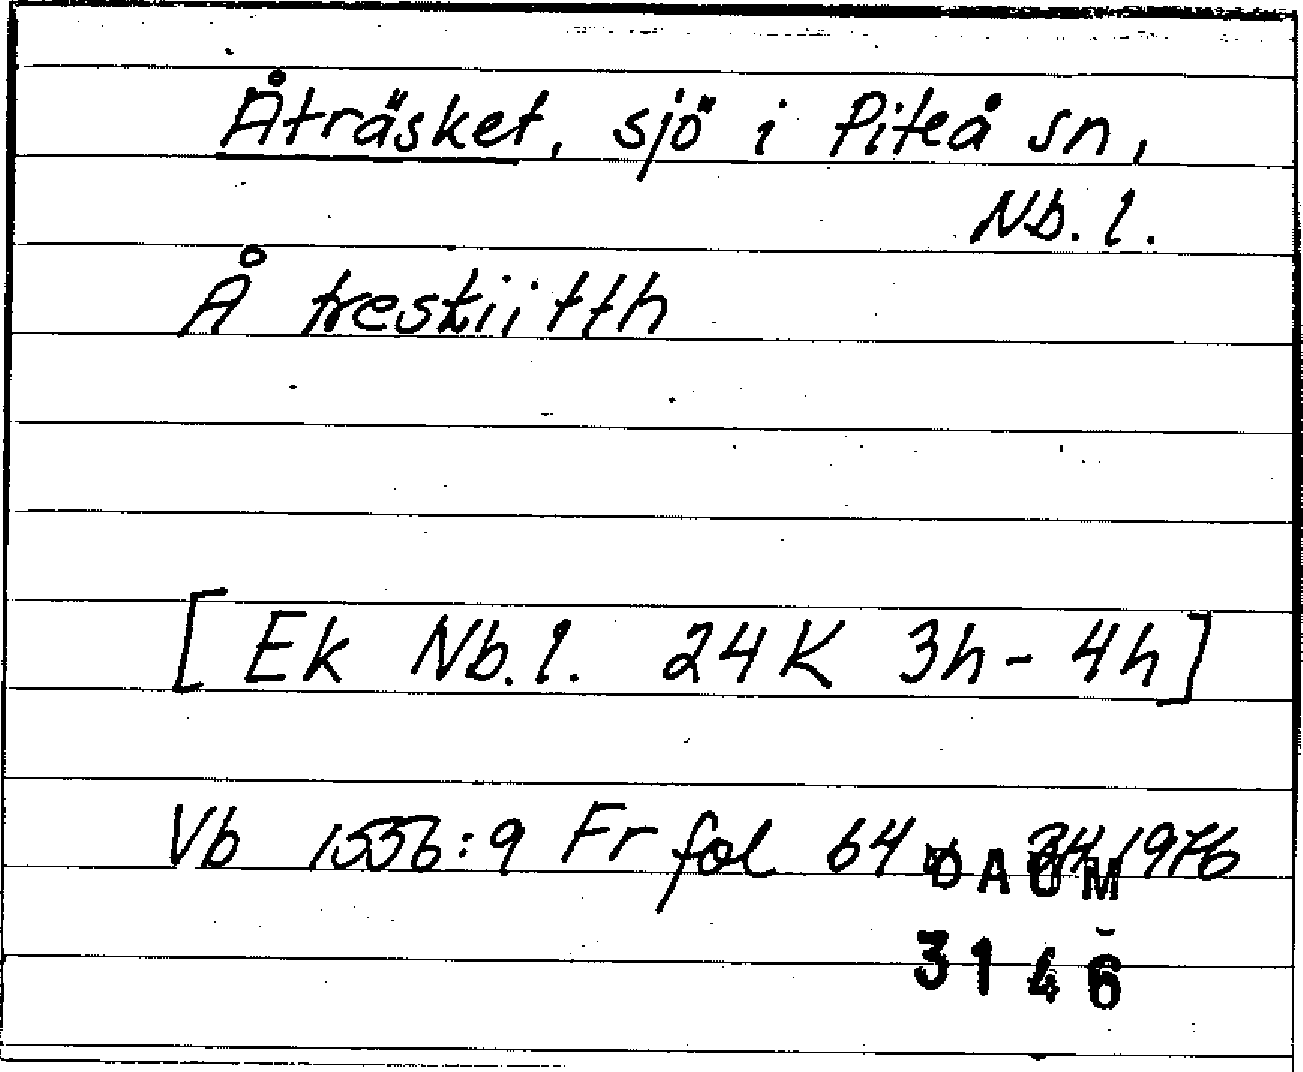 Åträsket, sjö i Piteå sn,
Nb. l.
Å treskiitth
[Ek Nb. l. 24K 3h - 4h]
Vb 1556:9 Fr fol 64 v 1976
DAUM
3146